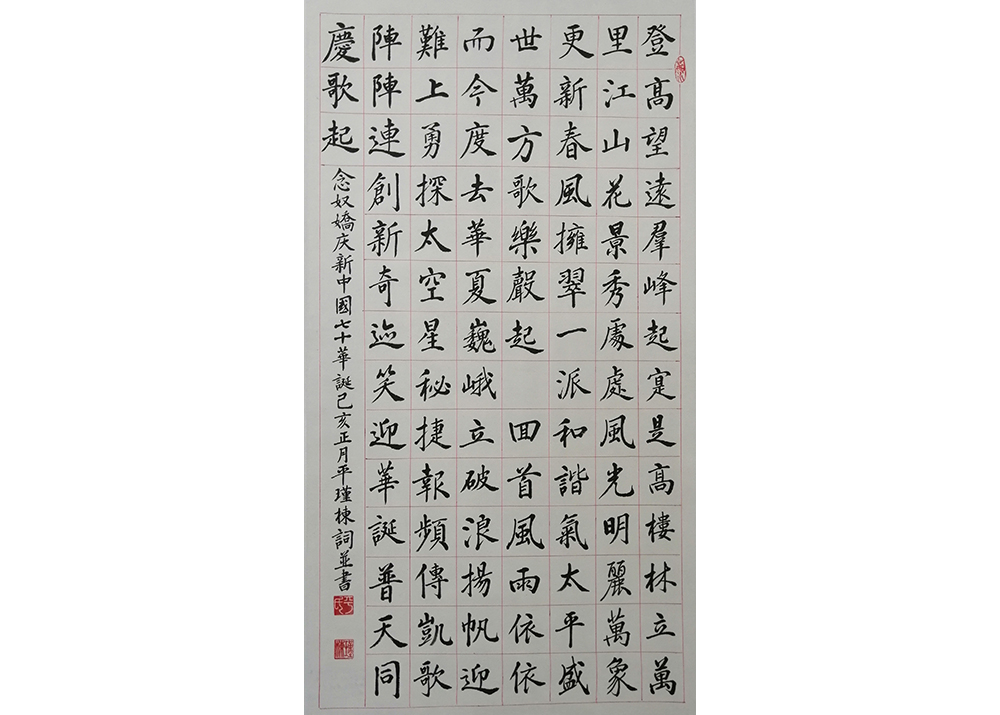 登高望遠羣峰起寔是高樓林立萬
里江山花景秀處處風光明麗萬象
更新春風擁翠一派和諧氣太平盛
世萬方歌樂聲起 回首風雨依依
而今度去華夏巍峨立破浪揚帆迎
難上勇探太空星秘捷報頻傳凱歌
陣陣連創新奇迹笑迎華誕普天同
慶歌起
念奴嬌庆新中國七十華誕己亥正月平瑾棟詞並書